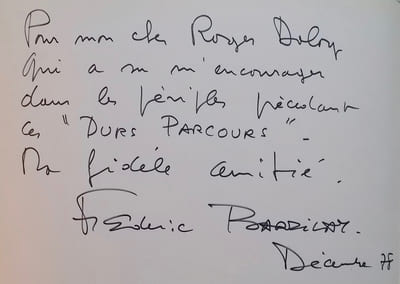 Pour mon cher Roger
Qui a su m'encourager
dans les périples précédant
ces "DURS PARCOURS".
Ma fidèle amitié.
Frédéric
Décembre